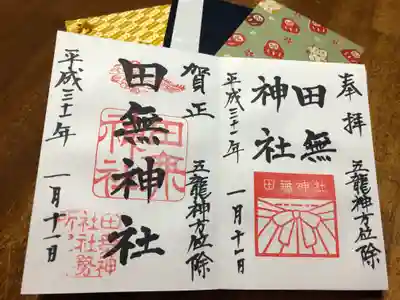 奉拝
五龍神方位除
田無
神社
田無神社
平成三十一年 一月十一日
賀正
五龍神方位除
田無神社
田無
神社
平成三十一年 一月十一日
田無神
社社務
所